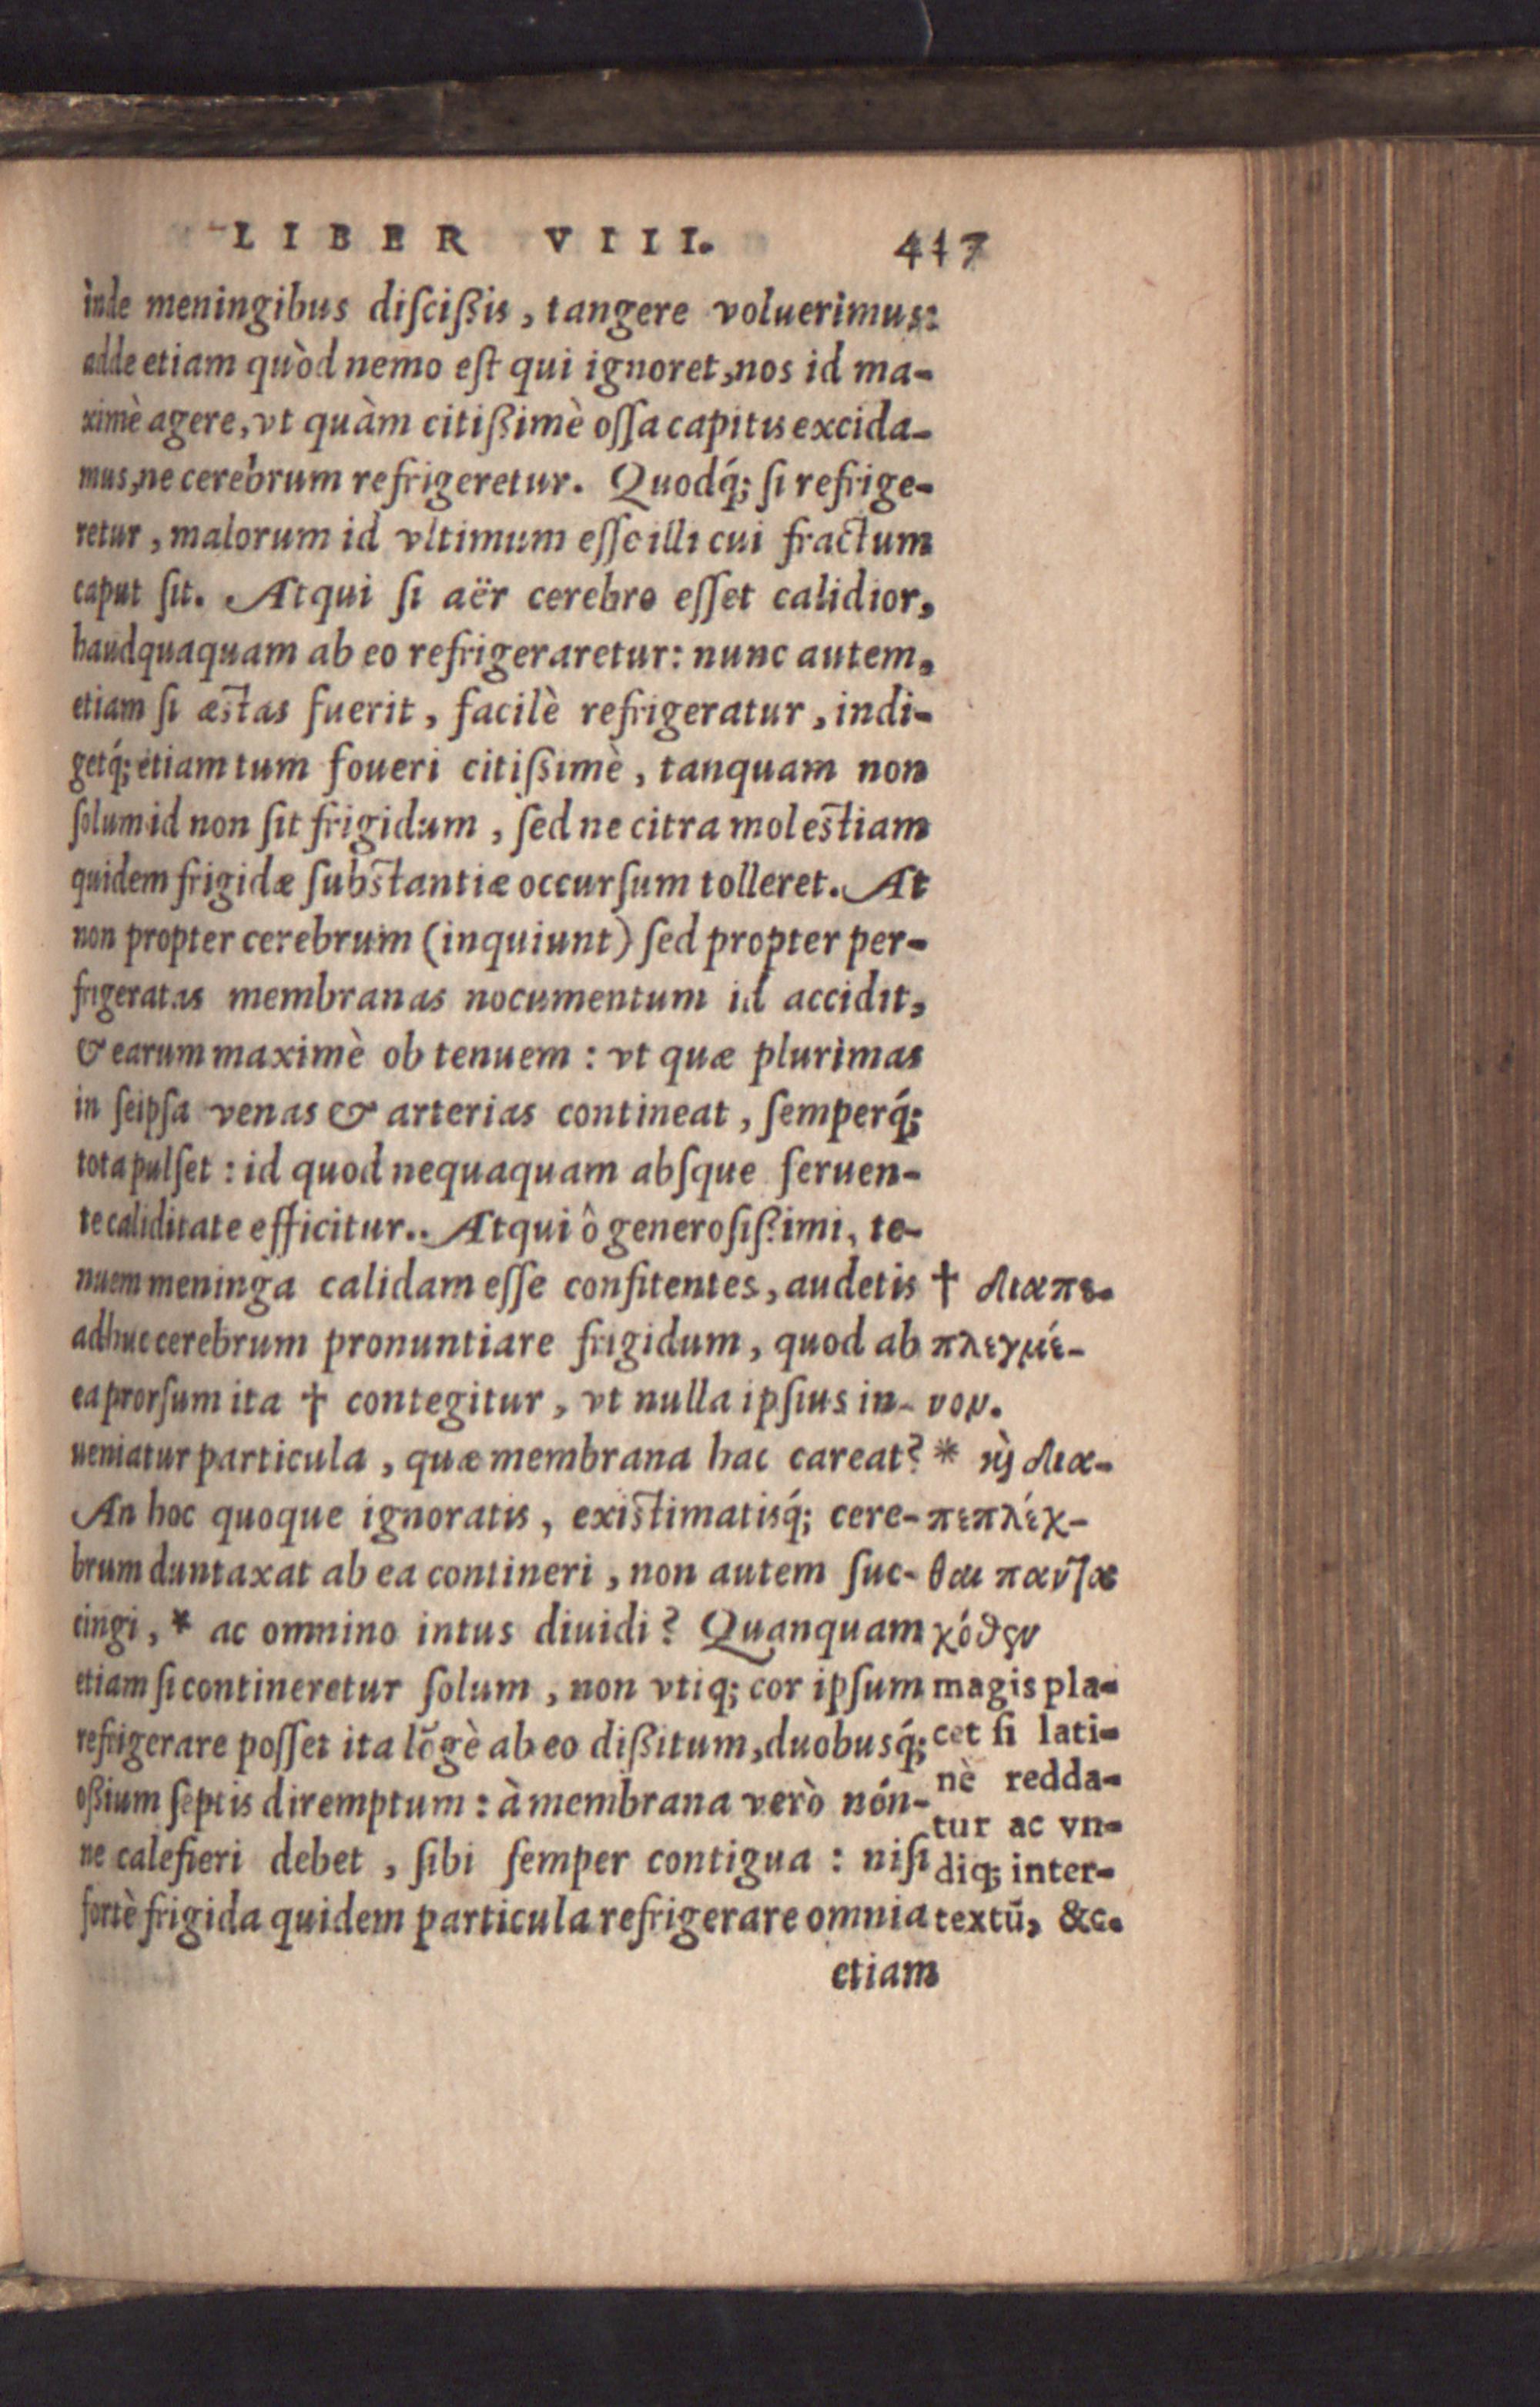 LIBER VIII. 417
inde meningibus diſcißis, tangere voluerimus:
adde etiam quòd nemo eſt qui ignoret, nos id ma-
ximè agere, vt quàm citißimè oſſa capitis excida-
mus, ne cerebrum refrigeretur. Quodq́; ſi refrige-
retur, malorum id vltimum eſſe illi cui fractum
caput ſit. Atqui ſi aër cerebro eſſet calidior,
haudquaquam ab eo refrigeraretur: nunc autem,
etiam ſi æſtas fuerit, facilè refrigeratur, indi-
getq́; etiam tum foueri citißimè, tanquam non
ſolum id non ſit frigidum, ſed ne citra moleſtiam
quidem frigidæ ſubſtantiæ occurſum tolleret. At
non propter cerebrum (inquiunt) ſed propter per-
frigeratas membranas nocumentum id accidit,
& earum maximè ob tenuem: vt quæ plurimas
in ſeipſa venas & arterias contineat, ſemperq́;
tota pulſet: id quod nequaquam abſque feruen-
te caliditate efficitur.. Atqui ô generoſißimi, te-
nuem meninga calidam eſſe confitentes, audetis
adhuc cerebrum pronuntiare frigidum, quod ab
ea prorſum ita † contegitur, vt nulla ipſius in-
ueniatur particula, quæ membrana hac careat?
An hoc quoque ignoratis, exiſtimatisq́; cere-
brum duntaxat ab ea contineri, non autem ſuc-
cingi, * ac omnino intus diuidi? Quanquam
etiam ſi contineretur ſolum, non vtiq; cor ipſum
refrigerare poſſet ita lõgè ab eo dißitum, duobusq́;
oßium ſeptis diremptum: à membrana verò nón-
ne calefieri debet, ſibi ſemper contigua: niſi
fortè frigida quidem particula refrigerare omnia
etiam
† διαπε-
πλεγμέ-
νον.
* κὴ δια-
πεπλέχ-
θαι παντα
χόθεν
magis pla-
cet ſi lati-
nè redda-
tur ac vn-
diq; inter-
textũ, &c.